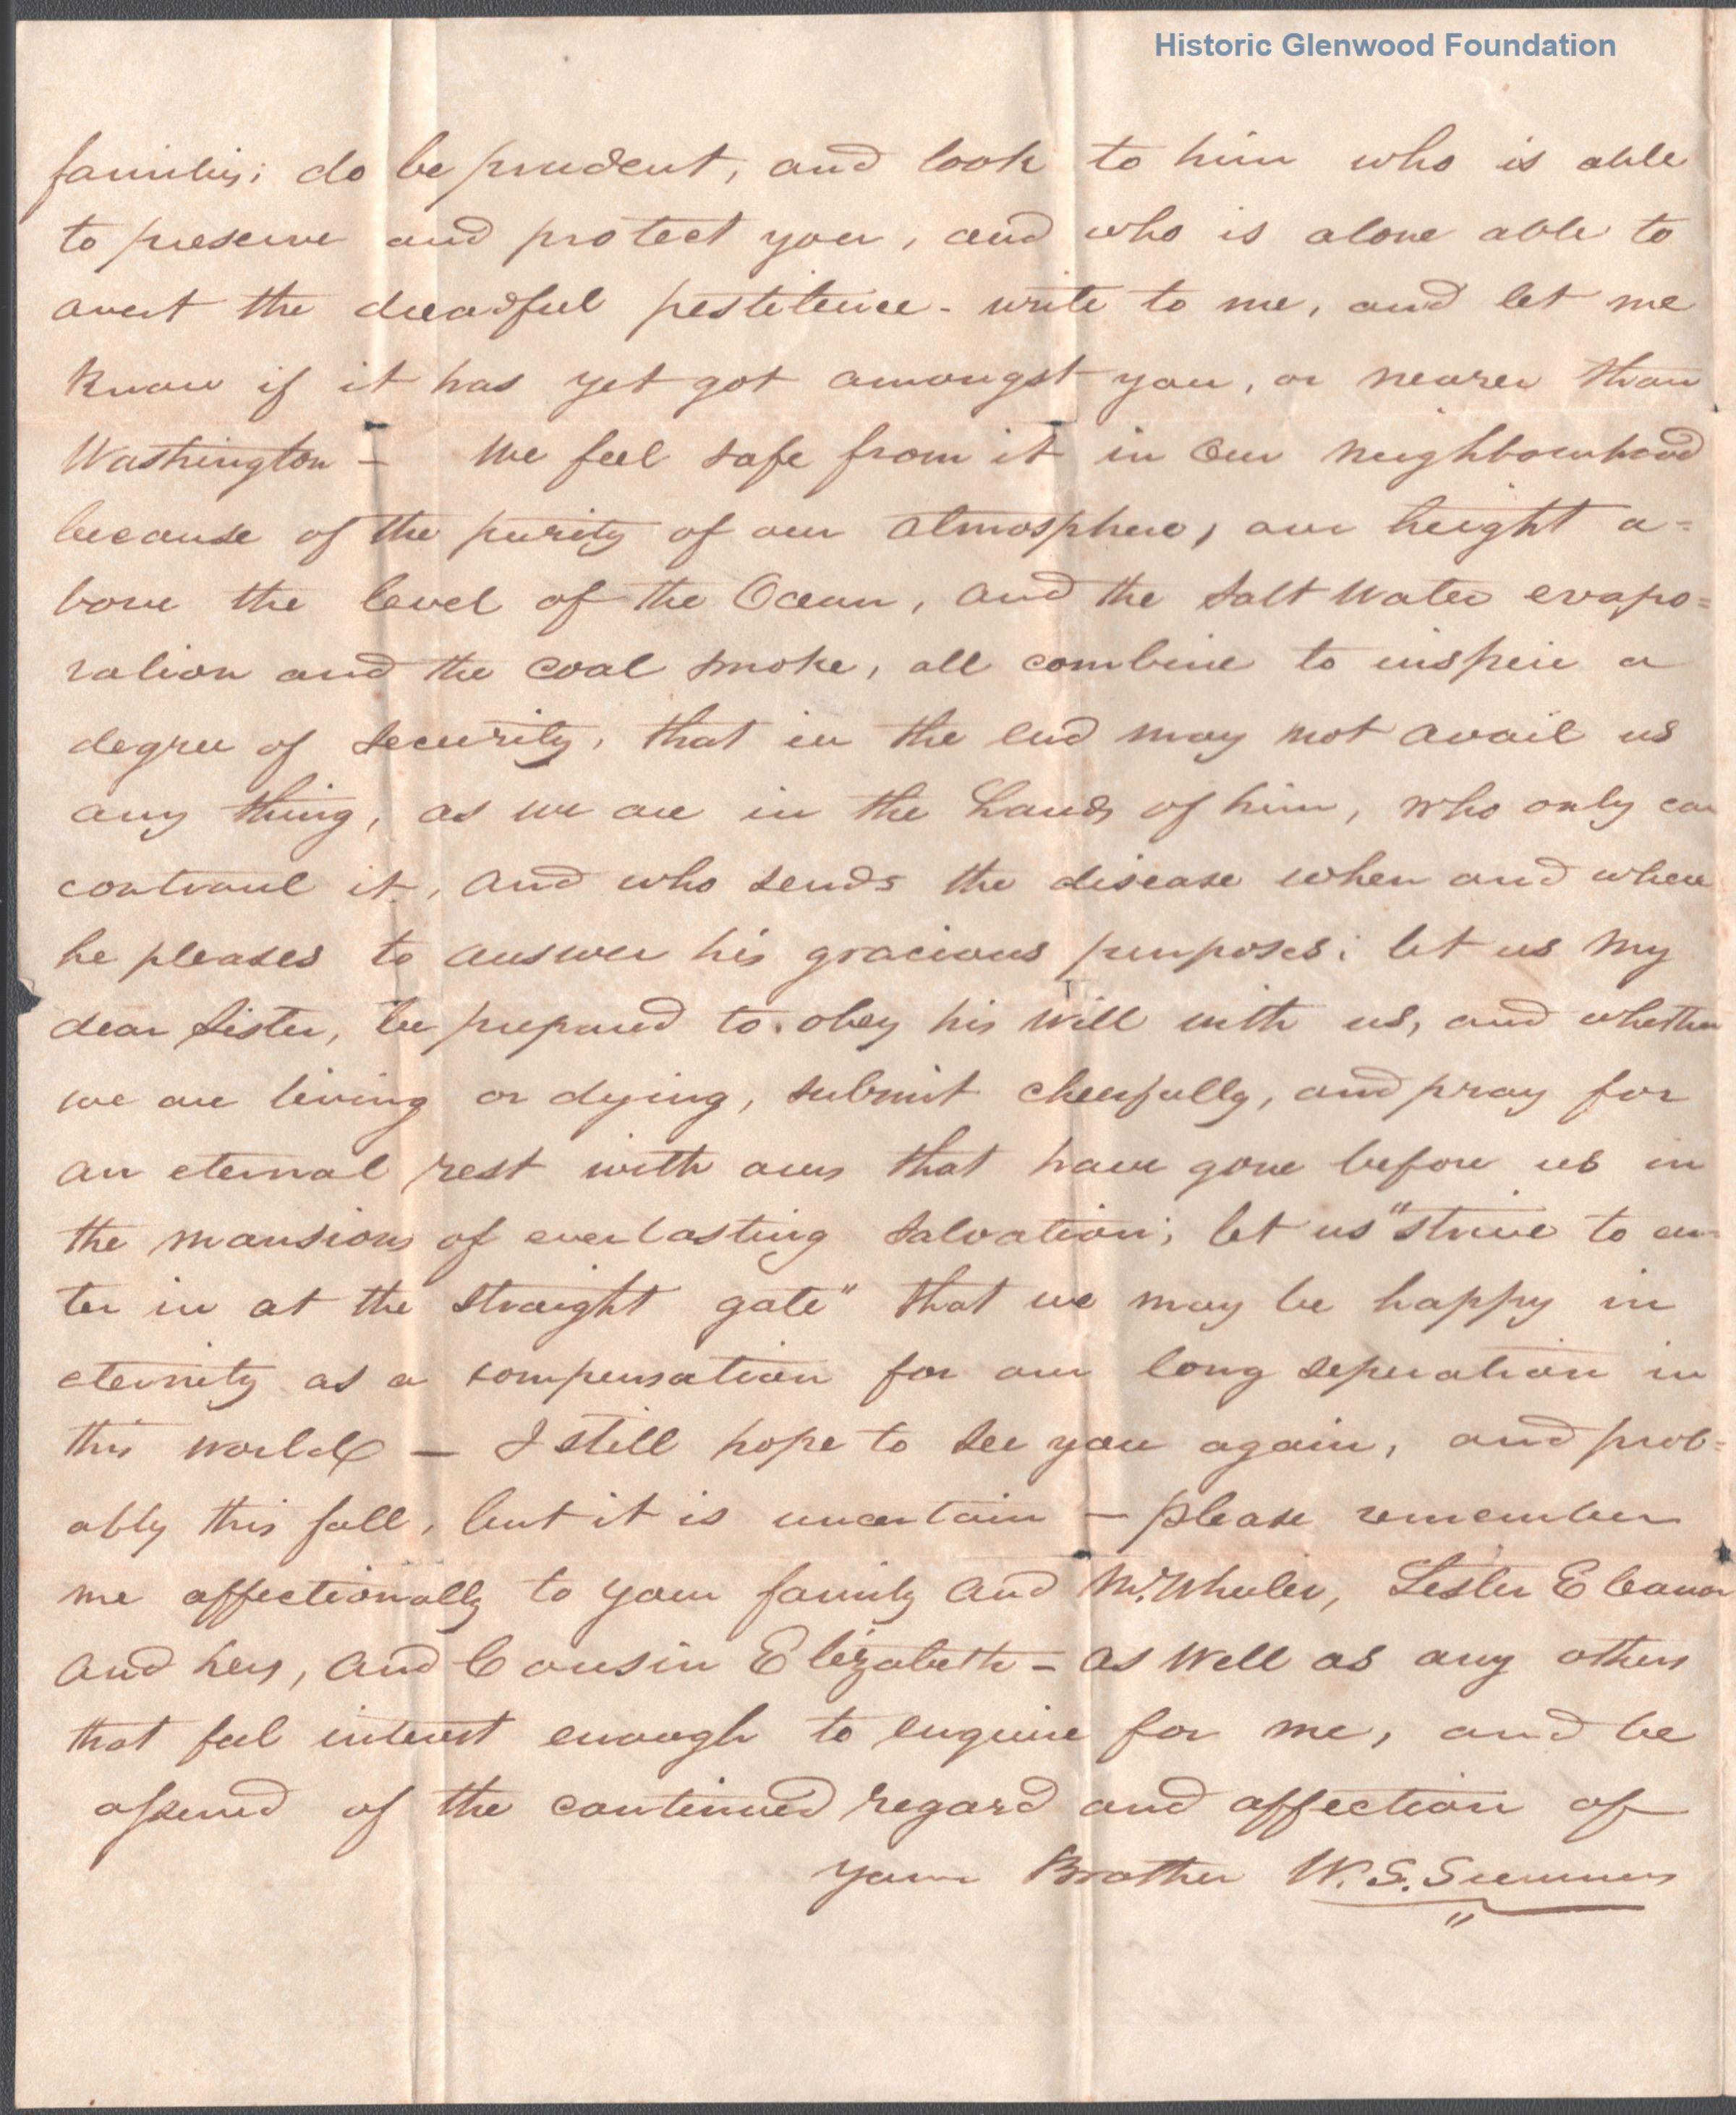 Historic Glenwood Foundation
families; do be prudent, and look to him who is able
to preserve and protect you, and who is alone able to
avert the dreadful pestilence - write to me, and let me
know if it has yet got amongst you, or nearer than
Washington - We feel safe from it in our neighbourhood
because of the purity of our atmosphere, our height a=
bove the level of the Ocean, and the Salt Water evapo=
ration and the coal smoke, all combine to inspire a
degree of security, that in the end may not avail us
any thing, as we are in the hands of him, who only can
controul it, and who sends the disease when and where
he pleases to answer his gracious purposes; let us my
dear Sister, be prepared to obey his will with us, and whether
we are living or dying, submit cheerfully, and pray for
an eternal rest with ours that have gone before us in
the mansions of everlasting Salvation; let us "strive to en-
ter in at the straight gate" that we may be happy in
eternity as a compensation for our long seperation in
this world - I still hope to see you again, and prob=
ably this fall, but it is uncertain - please remember
me affectionally to your family and Mr. Wheeler, Sister Eleanor
and hers, and Cousin Elizabeth - as well as any others
that feel interest enough to enquire for me, and be
assured of the continued regard and affection of
your Brother W. S. Summers